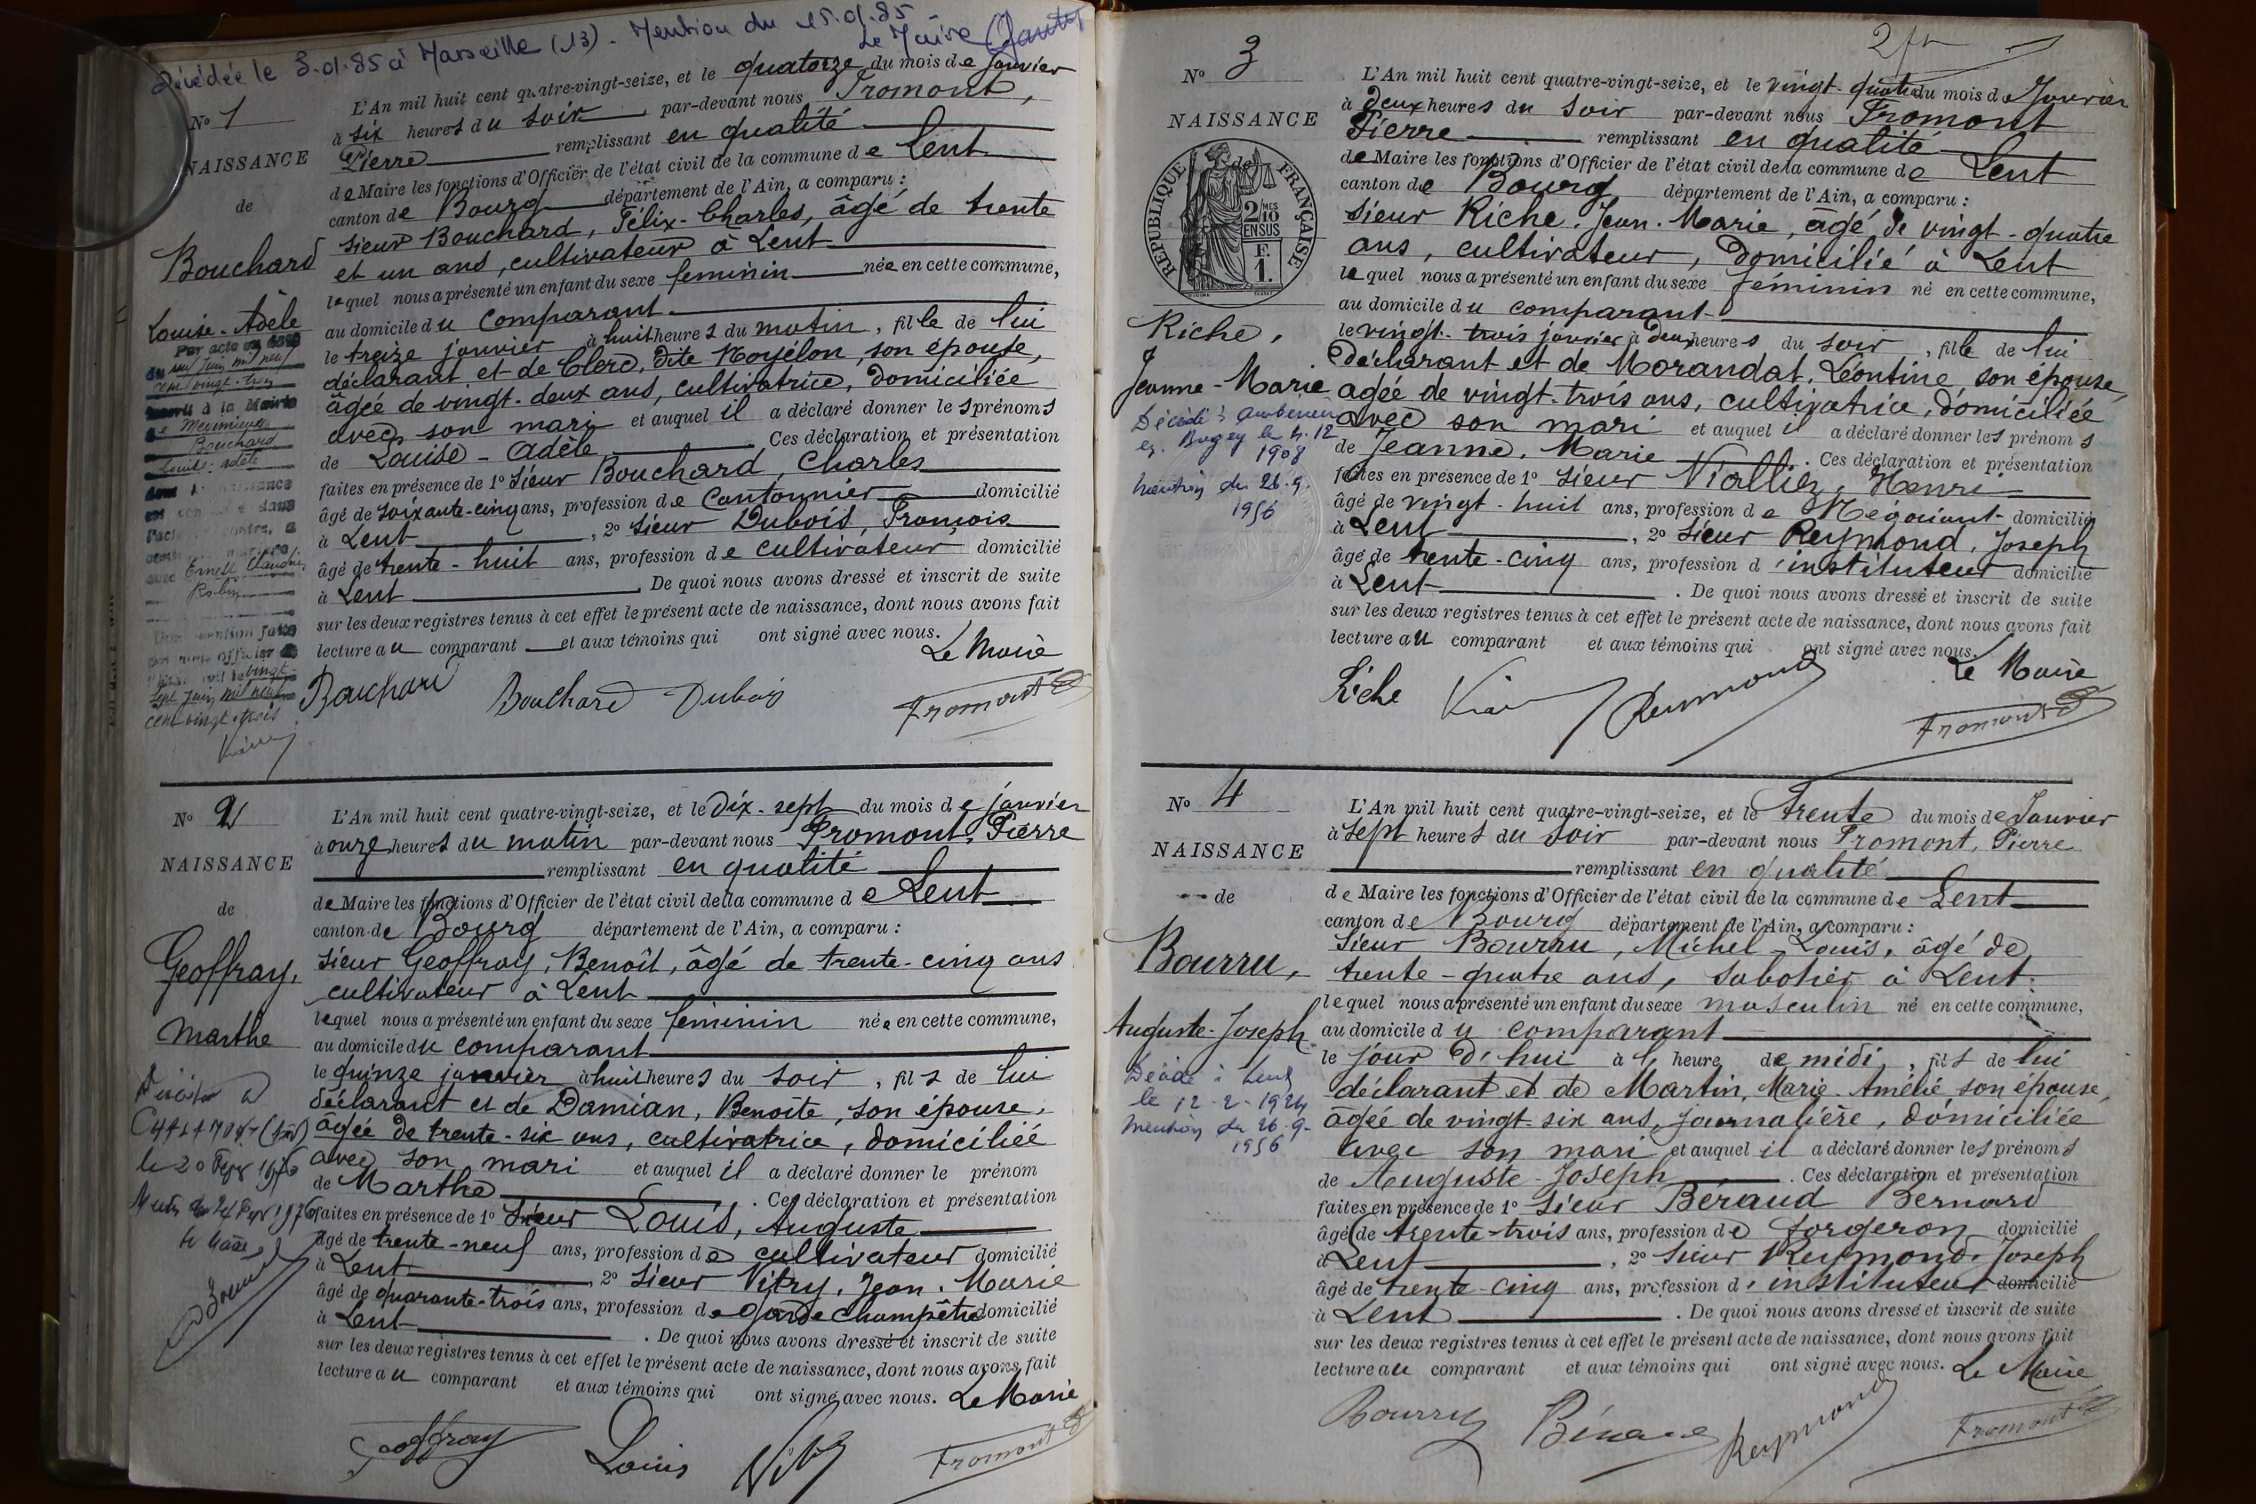 Décédée le 3.01.85 à Marseille (13) - Mention du 15.01.85
Le Maire
No 1
NAISSANCE
de
Bouchard
Louise-Adèle
L'An mil huit cent quatre-vingt-seize, et le quatorze du mois de Janvier
à six heures du soir par-devant nous Fromont,
Pierre remplissant en qualité
de Maire les fonctions d'Officier de l'état civil de la commune de Lent
canton de Bourg département de l'Ain, a comparu :
sieur Bouchard, Félix-Charles, âgé de trente
et un ans, cultivateur à Lent
lequel nous a présenté un enfant du sexe feminin née en cette commune,
au domicile du comparant
le treize janvier à huit heures du matin, fille de lui
déclarant et de Clerc, dite Noyélon, son épouse,
âgée de vingt-deux ans, cultivatrice, domiciliée
avec son mari et auquel il a déclaré donner les prénoms
de Louise - Adèle Ces déclaration et présentation
faites en présence de 1o Sieur Bouchard, Charles
âgé de soixante-cinq ans, profession de Cantonnier domicilié
à Lent, 2o sieur Dubois, François
âgé de trente-huit ans, profession de cultivateur domicilié
à Lent. De quoi nous avons dressé et inscrit de suite
sur les deux registres tenus à cet effet le présent acte de naissance, dont nous avons fait
lecture au comparant et aux témoins qui ont signé avec nous.
Le Maire
Bouchard Bouchard Dubois Fromont
Par acte
du neuf Juin mil neuf
cent vingt-trois
inscrit à la Mairie
de Meximieux
Bouchard
Louise-Adèle
dont la naissance
avec Ernest Claudius
Robin
sept Juin mil neuf
cent vingt trois
No 2
NAISSANCE
de
Geoffray,
Marthe
L'An mil huit cent quatre-vingt-seize, et le dix-sept du mois de janvier
à onze heures du matin par-devant nous Fromont, Pierre
remplissant en qualité
de Maire les fonctions d'Officier de l'état civil de la commune de Lent
canton de Bourg département de l'Ain, a comparu :
sieur Geoffray, Benoît, âgé de trente-cinq ans
cultivateur à Lent
lequel nous a présenté un enfant du sexe féminin née en cette commune,
au domicile du comparant
le quinze janvier à huit heures du soir, fils de lui
déclarant et de Damian, Benoîte, son épouse,
âgée de trente-six ans, cultivatrice, domiciliée
avec son mari et auquel il a déclaré donner le prénom
de Marthe. Ces déclaration et présentation
faites en présence de 1o Sieur Louis, Auguste
âgé de trente-neuf ans, profession de cultivateur domicilié
à Lent, 2o sieur Vitry, Jean-Marie
âgé de quarante-trois ans, profession de garde champêtre domicilié
à Lent. De quoi nous avons dressé et inscrit de suite
sur les deux registres tenus à cet effet le présent acte de naissance, dont nous avons fait
lecture au comparant et aux témoins qui ont signé avec nous. Le Maire
Geoffray Louis Fromont
No 3
NAISSANCE
de
RÉPUBLIQUE FRANÇAISE
2 MES
10
EN SUS
F.
1.
Riche,
Jeanne-Marie
L'An mil huit cent quatre-vingt-seize, et le vingt-quatre du mois de Janvier
à deux heures du soir par-devant nous Fromont
Pierre remplissant en qualité
de Maire les fonctions d'Officier de l'état civil de la commune de Lent
canton de Bourg département de l'Ain, a comparu :
sieur Riche, Jean-Marie, âgé de vingt-quatre
ans, cultivateur, domicilié à Lent
lequel nous a présenté un enfant du sexe féminin né en cette commune,
au domicile du comparant
le vingt-trois janvier à deux heures du soir, fille de lui
déclarant et de Morandat, Léontine, son épouse,
âgée de vingt-trois ans, cultivatrice, domiciliée
avec son mari et auquel il a déclaré donner les prénoms
de Jeanne, Marie. Ces déclaration et présentation
faites en présence de 1o sieur Viallier, Henri
âgé de vingt-huit ans, profession de Négociant domicilié
à Lent, 2o sieur Reymond, Joseph
âgé de trente-cinq ans, profession d'instituteur domicilié
à Lent. De quoi nous avons dressé et inscrit de suite
sur les deux registres tenus à cet effet le présent acte de naissance, dont nous avons fait
lecture au comparant et aux témoins qui ont signé avec nous.
Le Maire
Riche Reymond Fromont
Décédée à Ambérieu
en Bugey le 4.12
1908
mention du 26.9.
1956
No 4
NAISSANCE
de
Bourru,
Auguste-Joseph
L'An mil huit cent quatre-vingt-seize, et le trente du mois de Janvier
à sept heures du soir par-devant nous Fromont, Pierre
remplissant en qualité
de Maire les fonctions d'Officier de l'état civil de la commune de Lent
canton de Bourg département de l'Ain, a comparu :
Sieur Bourru, Michel-Louis, âgé de
trente-quatre ans, sabotier à Lent
lequel nous a présenté un enfant du sexe masculin né en cette commune,
au domicile du comparant
le jour d'hui à heure de midi, fils de lui
déclarant et de Martin, Marie-Amélie son épouse,
âgée de vingt-six ans, journalière, domiciliée
avec son mari et auquel il a déclaré donner les prénoms
de Auguste-Joseph. Ces déclaration et présentation
faites en présence de 1o sieur Béraud Bernard
âgé de trente-trois ans, profession de forgeron domicilié
à Lent, 2o sieur Reymond, Joseph
âgé de trente-cinq ans, profession d'instituteur domicilié
à Lent. De quoi nous avons dressé et inscrit de suite
sur les deux registres tenus à cet effet le présent acte de naissance, dont nous avons fait
lecture au comparant et aux témoins qui ont signé avec nous. Le Maire
Bourru Béraud Reymond Fromont
Décédé à Lent
le 12-2-1924
mention du 26.9.
1956